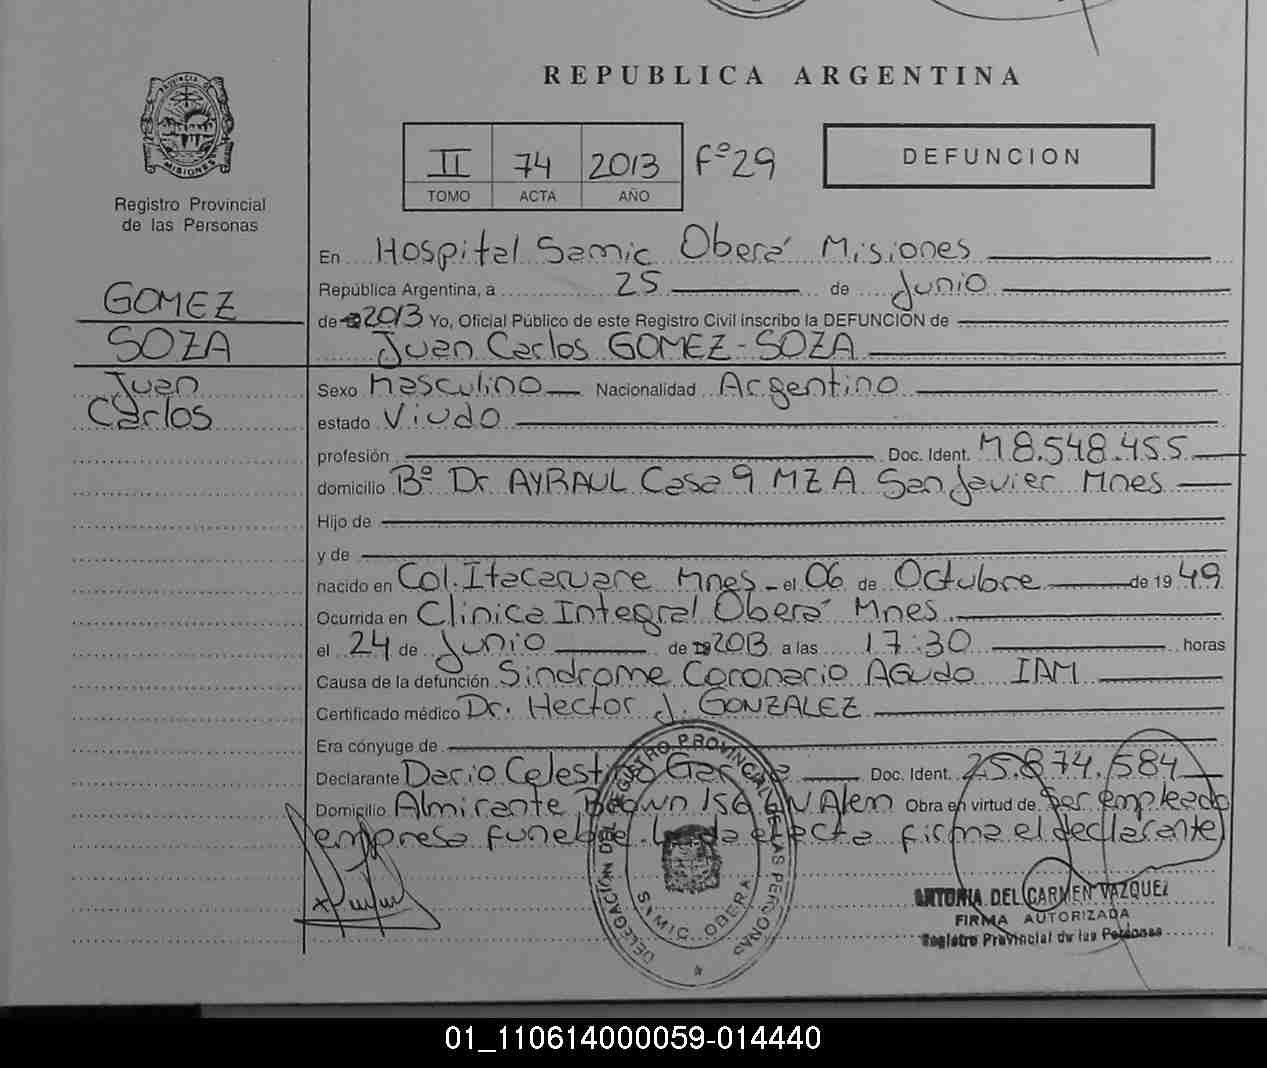 REPUBLICA ARGENTINA
PROVINCIA DE
MISIONES
Registro Provincial
de las Personas
II 74 2013 Fº 29
TOMO ACTA AÑO
DEFUNCION
GOMEZ
SOZA
Juan
Carlos
En Hospital Samic Oberá Misiones
República Argentina, a 25 de Junio
de 2013 Yo, Oficial Público de este Registro Civil inscribo la DEFUNCIÓN de
Juan Carlos GOMEZ-SOZA
Sexo Masculino Nacionalidad Argentino
estado Viudo
profesión Doc. Ident. M8.548.455
domicilio Bº Dr AYRAUL Casa 9 MZ A San Javier Mnes
Hijo de
y de
nacido en Col. Itacaruare Mnes - el 06 de Octubre de 1949
Ocurrida en Clinica Integral Oberá Mnes.
el 24 de Junio de 2013 a las 17:30 horas
Causa de la defunción Sindrome Coronario AGudo IAM
Certificado médico Dr. Hector J. GONZALEZ
Era cónyuge de
Declarante Dario Celestino Doc. Ident. 25.874.584
Domicilio Almirante Brown 156 LN Alem Obra en virtud de Ser empleado
empresa funebre. Leida el acta firma el declarante
DELEGACIÓN DEL REGISTRO PROVINCIAL DE LAS PERSONAS
SAMIC OBERA
ANTONIA DEL CARMEN VAZQUEZ
FIRMA AUTORIZADA
Registro Provincial de las Personas
01_110614000059-014440